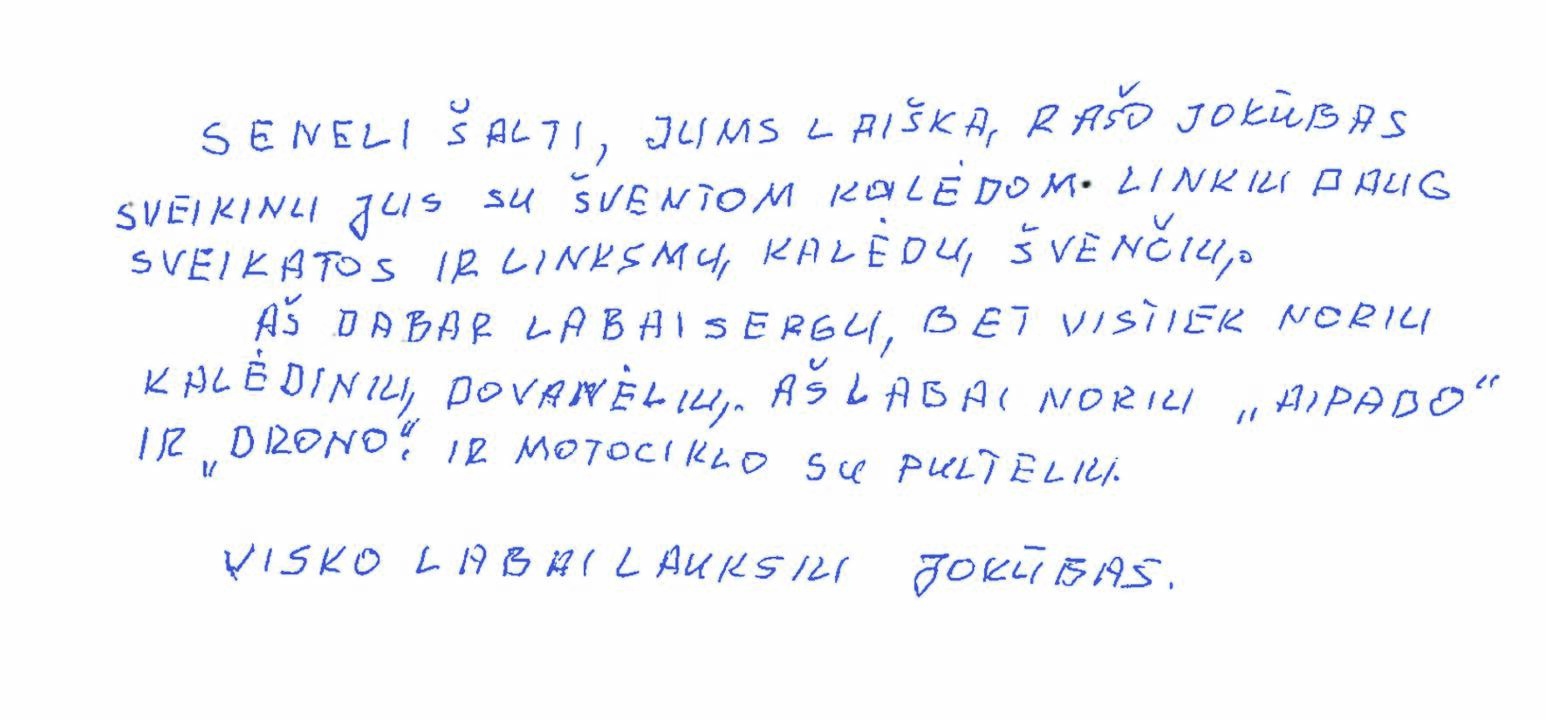 SENELI ŠALTI, JUMS LAIŠKĄ RAŠO JOKŪBAS
SVEIKINU JUS SU ŠVENTOM KALĖDOM. LINKIU DAUG
SVEIKATOS IR LINKSMŲ KALĖDŲ ŠVENČIŲ.
AŠ DABAR LABAI SERGU, BET VISTIEK NORIU
KALĖDINIŲ DOVANĖLIŲ. AŠ LABAI NORIU „AIPADO“
IR „DRONO“. IR MOTOCIKLO SU PULTELIU.
VISKO LABAI LAUKSIU JOKŪBAS.